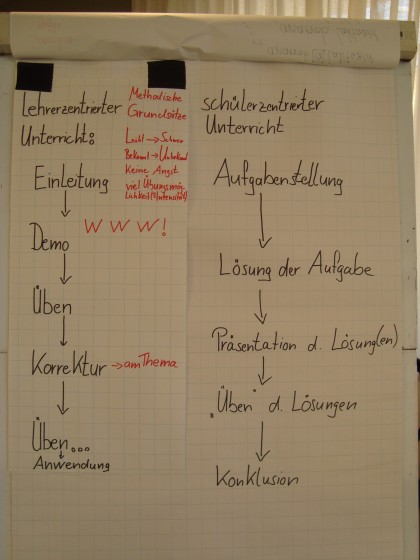 Lehrerzentrierter
Unterricht:
Methodische
Grundsätze
Leicht → Schwer
Bekannt → Unbekannt
Keine Angst
viel Übungsmög-
lichkeit (Intensität)
Einleitung
↓
W W W !
Demo
↓
Üben
↓
Korrektur → am Thema
↓
Üben...
↓
Anwendung
schülerzentrierter
Unterricht
Aufgabenstellung
↓
Lösung der Aufgabe
↓
Präsentation d. Lösung(en)
↓
"Üben" d. Lösungen
↓
Konklusion